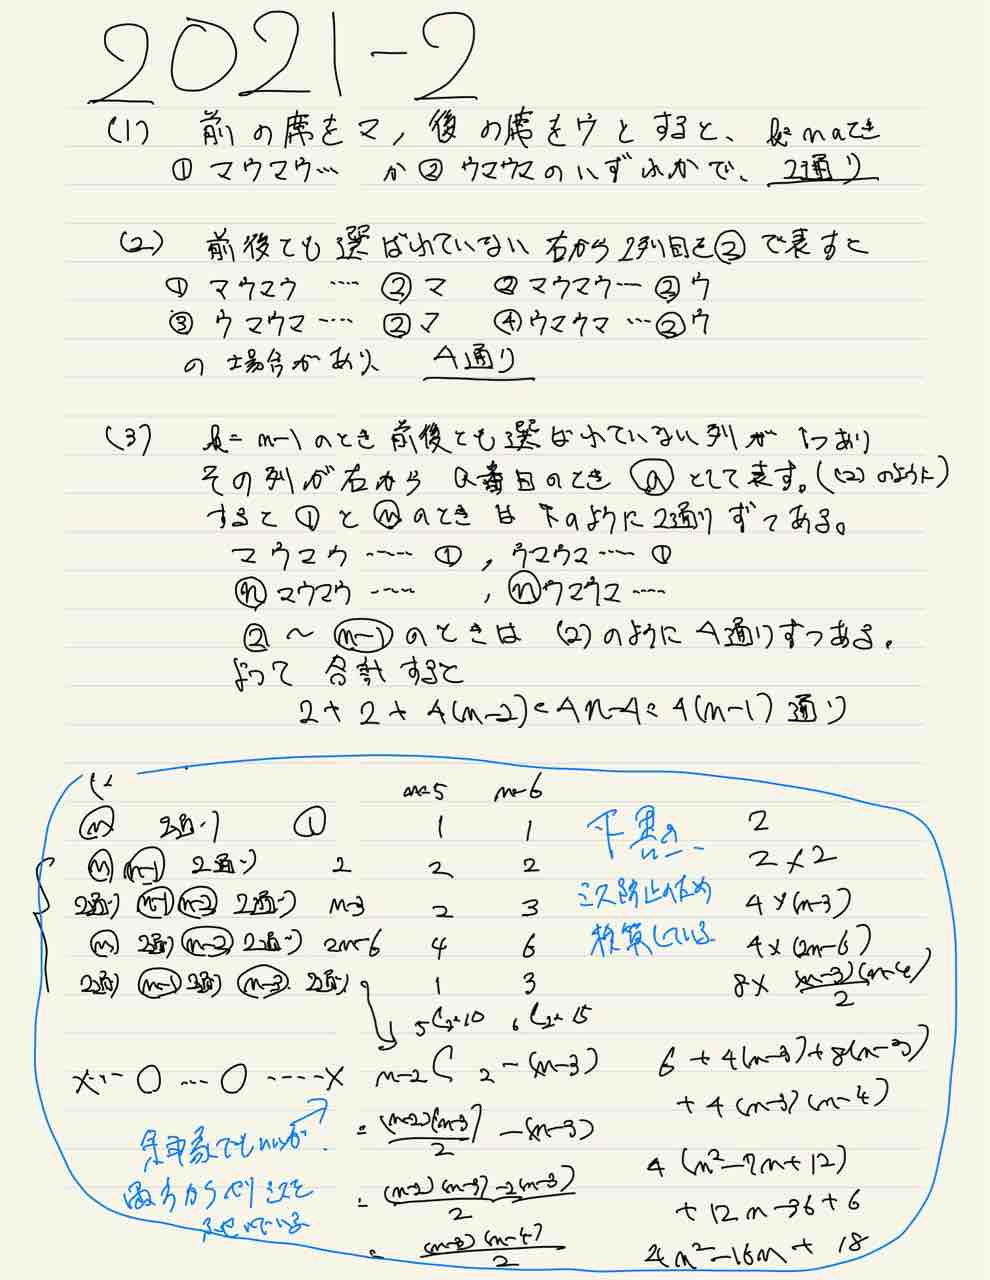 2021-2
(1) 前の席をマ, 後の席をウとすると、k=nのとき
① マウマウ… か ② ウマウマのいずれかで、2通り
(2) 前後とも選ばれていない右から2列目を②で表すと
① マウマウ …… ②マ ② マウマウ… ②ウ
③ ウマウマ…… ②マ ④ウマウマ …②ウ
の場合があり、4通り
(3) k=n-1のとき前後とも選ばれていない列が1つあり
その列が右からa番目のときⓐとして表す。((2)のように)
すると①とⓝのときは下のように2通りずつある。
マウマウ …… ①, ウマウマ…… ①
ⓝマウマウ …… , ⓝウマウマ ……
② 〜 (n-1)のときは (2)のように4通りずつある。
よって 合計すると
2+2+4(n-2)=4n-4=4(n-1)通り
n=5 n=6
ⓝ 2通り ① 1 1 下書き 2
ⓝ (n-1) 2通り 2 2 2 2×2
2通り (n-1)(n-2) 2通り n-3 2 3 ミス防止のため 4×(n-3)
ⓝ 2通り (n-2) 2通り 2n-6 4 6 検算している 4×(2n-6)
2通り (n-1) 2通り (n-3) 2通り 1 3 8× (n-3)(n-4)/2
5C2=10 6C2=15
×…○…○……× n-2C2-(n-3) 6+4(n-3)+8(n-3)
+4(n-3)(n-4)
= (n-2)(n-3)/2 -(n-3)
余事象でもいいが
4(n²-7n+12)
= (n-2)(n-3)-2(n-3)/2
両方からやりミスを
+12n-36+6
ふせいでいる
= (n-3)(n-4)/2
4n²-16n+18